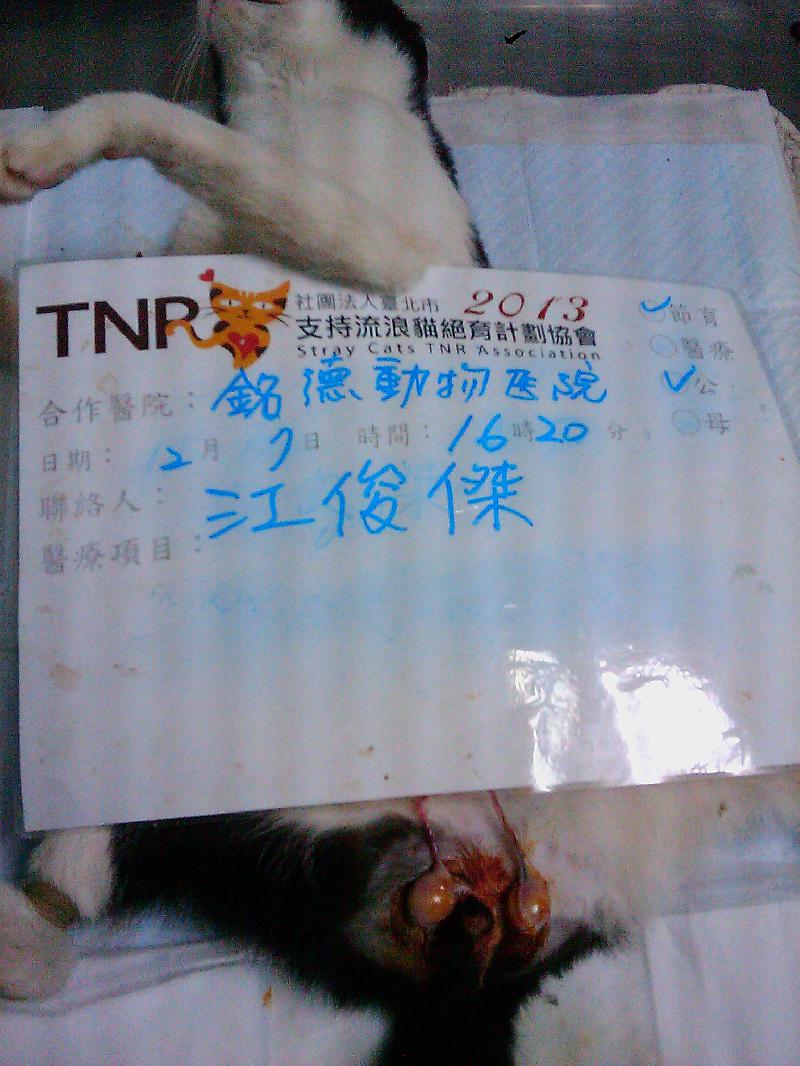 TNR 社團法人臺北市 2013
支持流浪貓絕育計劃協會
Stray Cats TNR Association
✓節育
醫療
✓公
母
合作醫院：銘德動物医院
日期：12月7日 時間：16時20分。
聯絡人：江俊傑
醫療項目：